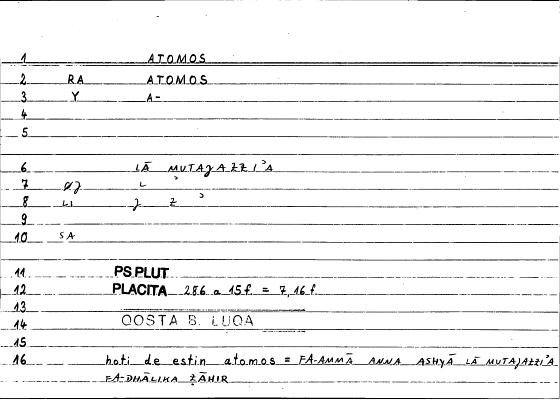 1 ATOMOS
2 RA ATOMOS
3 Y A-
4
5
6 LĀ MUTAJAZZI'A
7 ØJ L '
8 LI J Z '
9
10 SA
11 PS.PLUT
12 PLACITA 286 a 15f. = 7,16f.
13
14 QOSTA B. LUQA
15
16 hoti de estin atomos = FA-AMMĀ ANNA ASHYĀ LĀ MUTAJAZZI'A
FA-DHĀLIKA ẒĀHIR